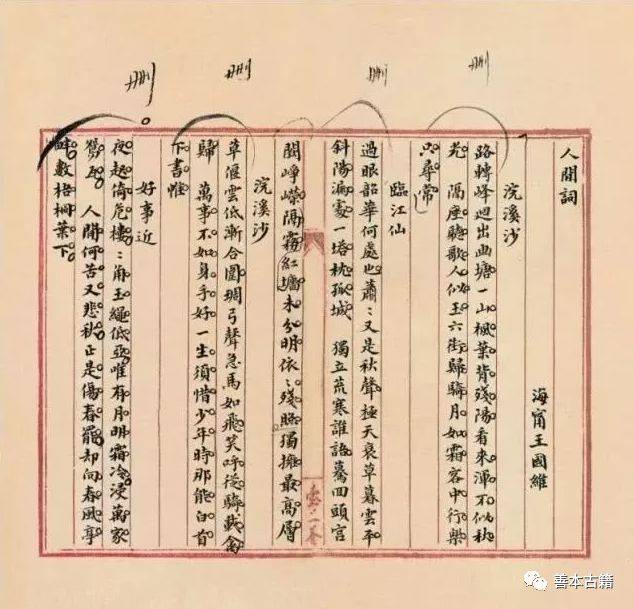 刪
刪
刪
刪
人間詞
海甯王國維
浣溪沙
路轉峰迴出曲塘一山楓葉背殘陽看來渾不似秋
光 隔座聽歌人似玉六街歸騎月如霜客中行樂
只尋常
臨江仙
過眼韶華何處也蕭〻又是秋聲極天衰草暮雲平
斜陽漏處一塔枕孤城 獨立荒寒誰語驀回頭宮
闕崢嶸隔霧紅牆未分明依〻殘照獨擁最高層
浣溪沙
草偃雲低漸合圍琱弓聲急馬如飛笑呼從騎載禽
歸 萬事不如身手好一生須惜少年時那能白首
下書帷
好事近
夜起倚危樓〻角玉繩低亞唯有月明霜冷浸萬家
鴛瓦 人間何苦又悲秋正是傷春罷卻向春風亭
畔數梧桐葉下
善本古籍